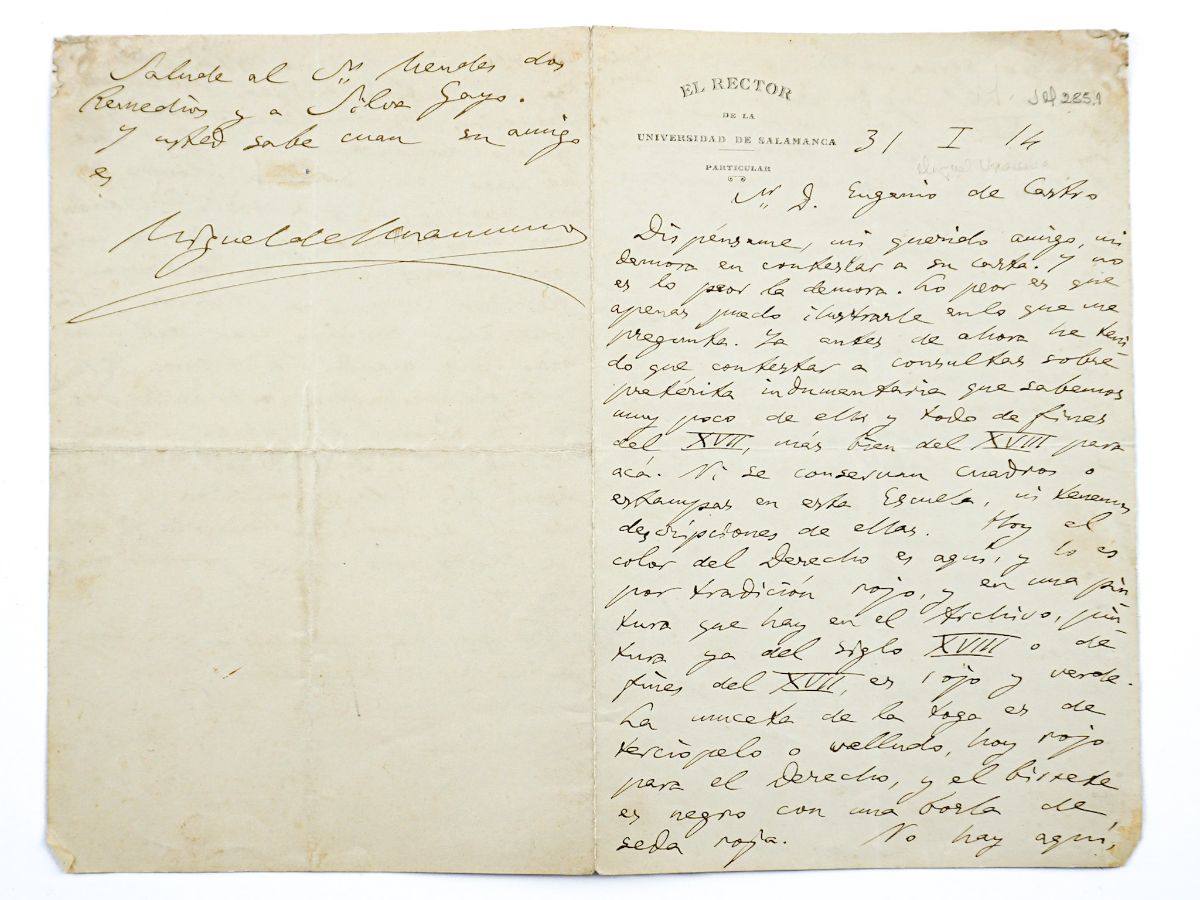 Salude al Sr. Mendes dos
Remedios y a Silva Gayo.
Y usted sabe cuan su amigo
es
Miguel de Unamuno
EL RECTOR
DE LA
UNIVERSIDAD DE SALAMANCA
PARTICULAR
31 I 14
Miguel Unamuno
Sr. D. Eugenio de Castro
Dispénseme, mi querido amigo, mi
demora en contestar a su carta. Y no
es lo peor la demora. Lo peor es que
apenas puedo ilustrarle en lo que me
pregunta. Ya antes de ahora he teni
do que contestar a consultas sobre
pretérita indumentaria que sabemos
muy poco de ella y todo de fines
del XVII, más bien del XVIII para
acá. Ni se conservan cuadros o
estampas en esta Escuela, ni tenemos
descripciones de ellas. Hoy el
color del Derecho es aquí, y lo es
por tradición rojo, y en una pin
tura que hay en el Archivo, pin
tura ya del siglo XVIII o de
fines del XVII, es rojo y verde.
La muceta de la toga es de
terciopelo o velludo, hoy rojo
para el Derecho, y el birrete
es negro con una borla de
seda roja. No hay aquí,